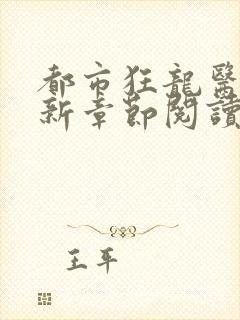 都市狂龍醫
新章節閱讀
王平